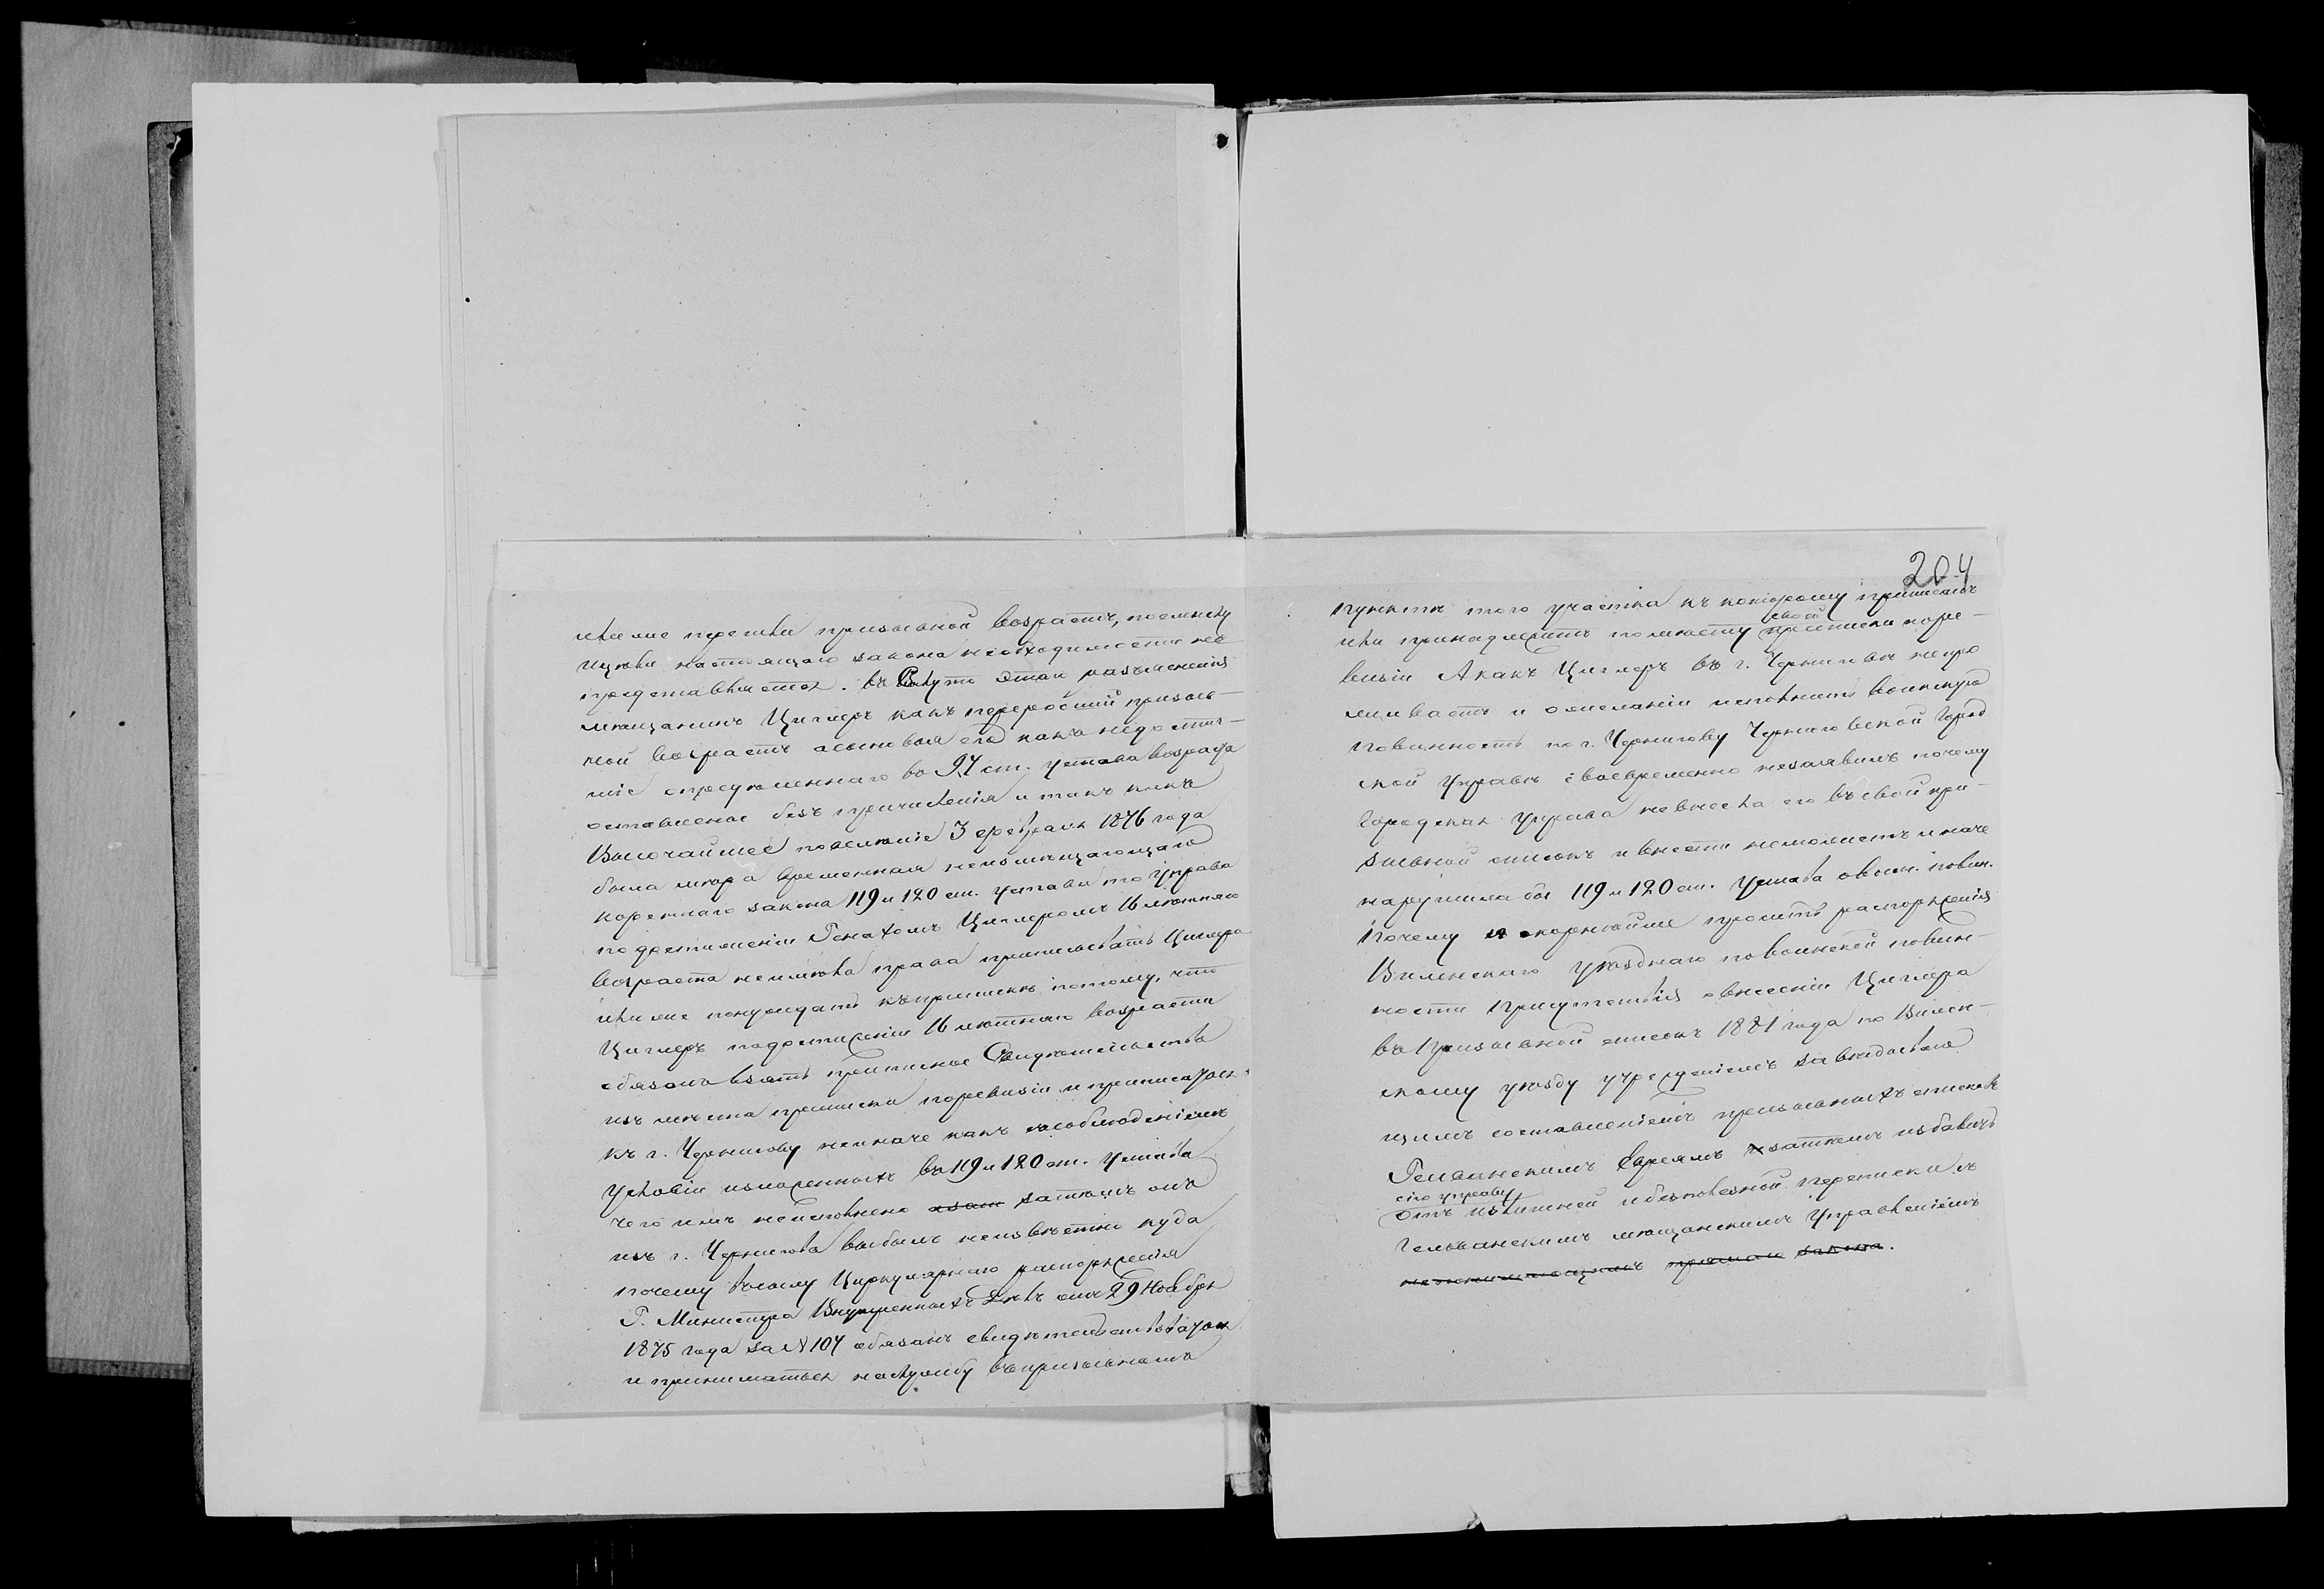 или же перешли призывной возрастъ, по смыслу
подобн. настоящаго закона необходимости не
представляется. въ Силу этаго разъясненія
мѣщанинъ Циглеръ какъ переросшій призыв-
ной возрастъ а сыновья его какъ недостиг-
шіе опредѣленнаго въ 97 ст. устава возраста
оставлены безъ причисленія и такъ какъ
Высочайшее повеленіе 3 февраля 1876 года
была мѣра временная неизмѣщающая
кореннаго закона 119 и 120 ст. устава то Управа
по достиженіи Генахомъ Циглеромъ 16 лѣтняго
возраста неимѣла права приписывать Циглера
или же понуждать къ припискѣ потому, что
Циглеръ по достиженіи 16 лѣтняго возраста
обязанъ взять приписное Свидѣтельство
изъ мѣста приписки по ревизіи и приписаться
къ г. Чернигову не иначе какъ съ соблюденіемъ
условій изложенныхъ въ 119 и 120 ст. Устава
чего имъ неисполнено затѣмъ онъ
изъ г. Чернигова выбылъ неизвѣстно куда
почему въ силу Циркулярнаго распоряженія
Г. Министра Внутреннихъ Дѣлъ отъ 29 Ноября
1875 года за № 107 обязанъ свидѣтельствоваться
и приниматься на службу въ призывномъ
204
пунктѣ того участка къ которому приписанъ
или принадлежитъ по мѣсту своей приписки по ре-
визіи А какъ Циглеръ въ г. Черниговѣ не про
живаетъ и о желаніи исполнить воинскую
повинность по г. Чернигову Черниговской Город
ской Управѣ своевременно незаявилъ почему
Городская Управа невнесла его въ свой при-
зывной списокъ и внести неможетъ иначе
нарушила бы 119 и 120 ст. Устава о воин. повин.
Почему и покорнѣйше проситъ распоряженія
Виленскаго уѣзднаго по воинской повин-
ности Присутствія о внесеніи Циглера
въ призывной списокъ 1881 года по Вилен-
скому уѣзду учрежденіемъ завѣдываю
щимъ составленіемъ призывныхъ списковъ
Гелванскимъ Евреямъ затѣмъ избавить
сію управу
отъ излишней и безполезной переписки съ
Гельванскимъ мѣщанскимъ Управленіемъ
непонимающимъ прямаго закона.